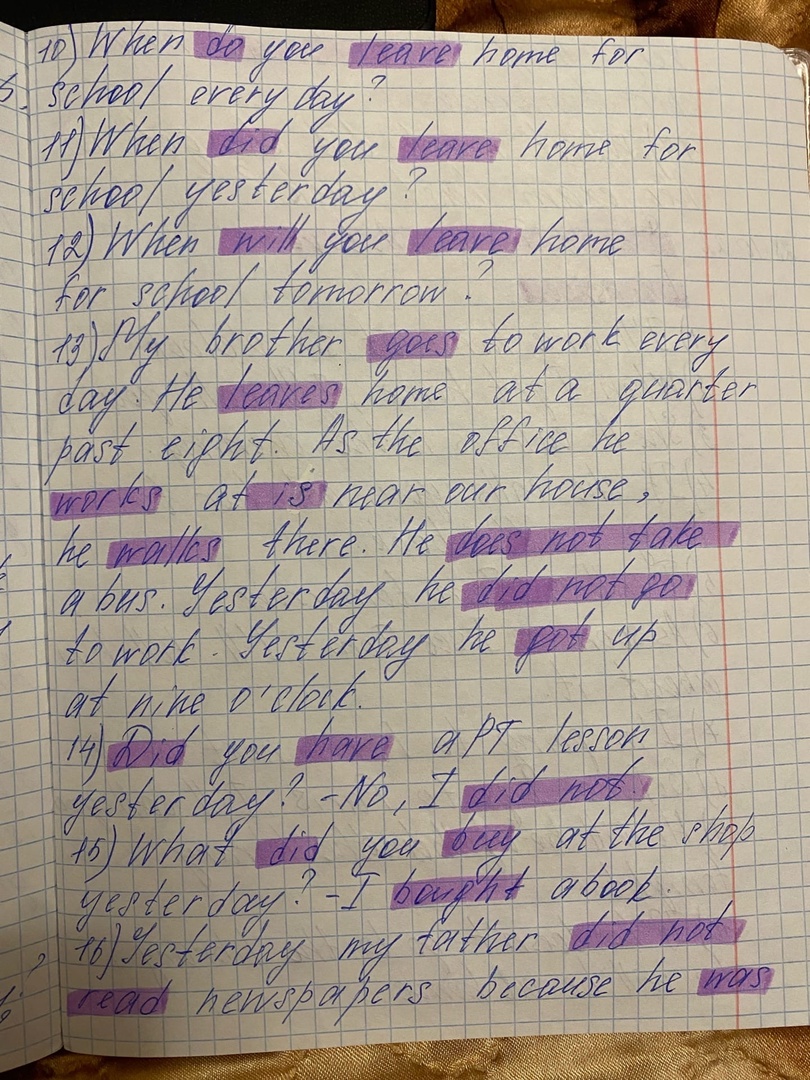 10) When do you leave home for
school every day?
11) When did you leave home for
school yesterday?
12) When will you leave home
for school tomorrow?
13) My brother goes to work every
day. He leaves home at a quarter
past eight. As the office he
works at is near our house,
he walks there. He does not take
a bus. Yesterday he did not go
to work. Yesterday he got up
at nine o'clock.
14) Did you have a PT lesson
yesterday? - No, I did not.
15) What did you buy at the shop
yesterday? - I bought a book.
16) Yesterday my father did not
read newspapers because he was